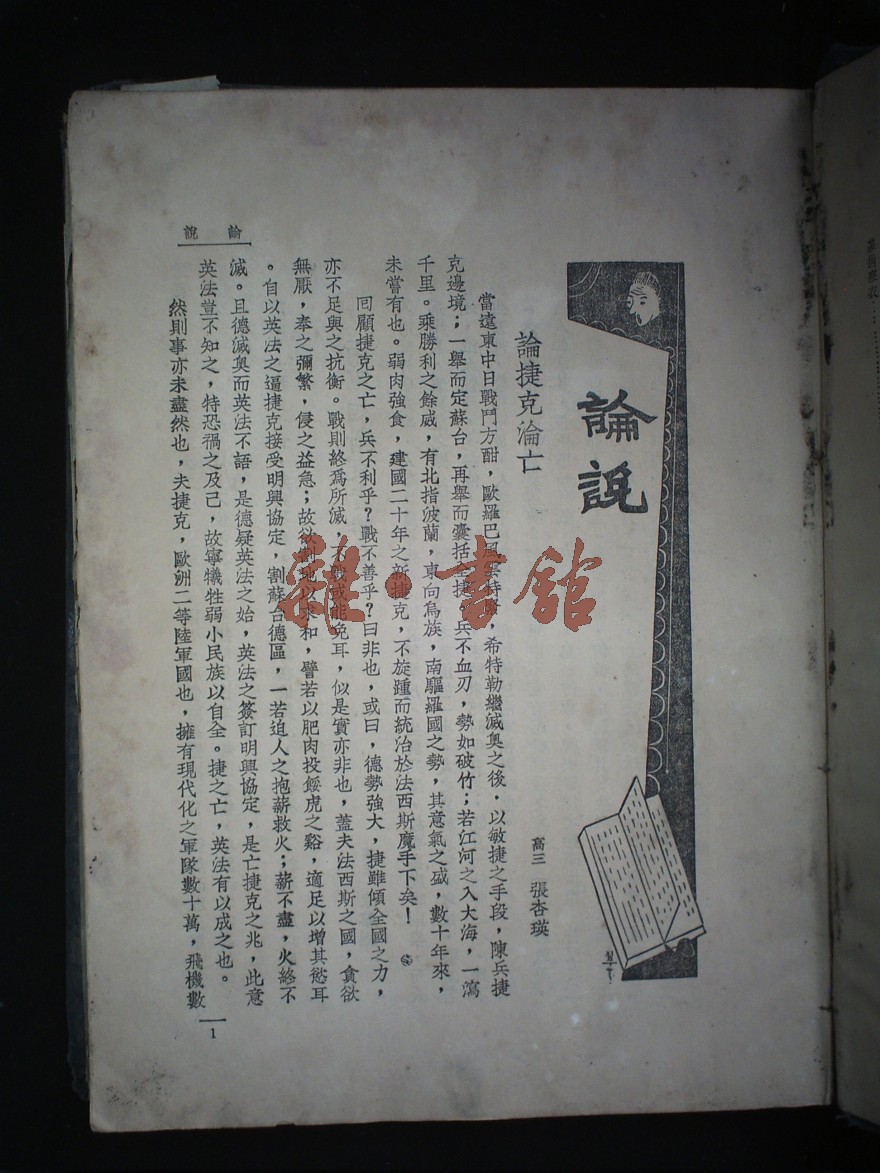 論說
論捷克淪亡
高三 張杏瑛
當遠東中日戰鬥方酣，歐羅巴風雲特，希特勒繼滅奥之後，以敏捷之手段，陳兵捷
克邊境；一舉而定蘇台，再舉而囊括全捷，兵不血刃，勢如破竹；若江河之入大海，一瀉
千里。乘勝利之餘威，有北指波蘭，東向烏族，南驅羅國之勢，其意氣之盛，數十年來，
未嘗有也。弱肉強食，建國二十年之新捷克，不旋踵而統治於法西斯魔手下矣！
回顧捷克之亡，兵不利乎？戰不善乎？曰非也，或曰，德勢強大，捷雖傾全國之力，
亦不足與之抗衡。戰則終爲所滅，不戰或能免耳，似是實亦非也，蓋夫法西斯之國，貪欲
無厭，奉之彌繁，侵之益急；故欲割地以求和，譬若以肥肉投餒虎之谿，適足以增其慾耳
。自以英法之逼捷克接受明興協定，割蘇台德區，一若迫人之抱薪救火；薪不盡，火終不
滅。且德滅奥而英法不語，是德疑英法之始，英法之簽訂明興協定，是亡捷克之兆，此意
英法豈不知之，特恐禍之及己，故寧犧牲弱小民族以自全。捷之亡，英法有以成之也。
然則事亦未盡然也，夫捷克，歐洲二等陸軍國也，擁有現代化之軍隊數十萬，飛機數
論說
1
雜·書館